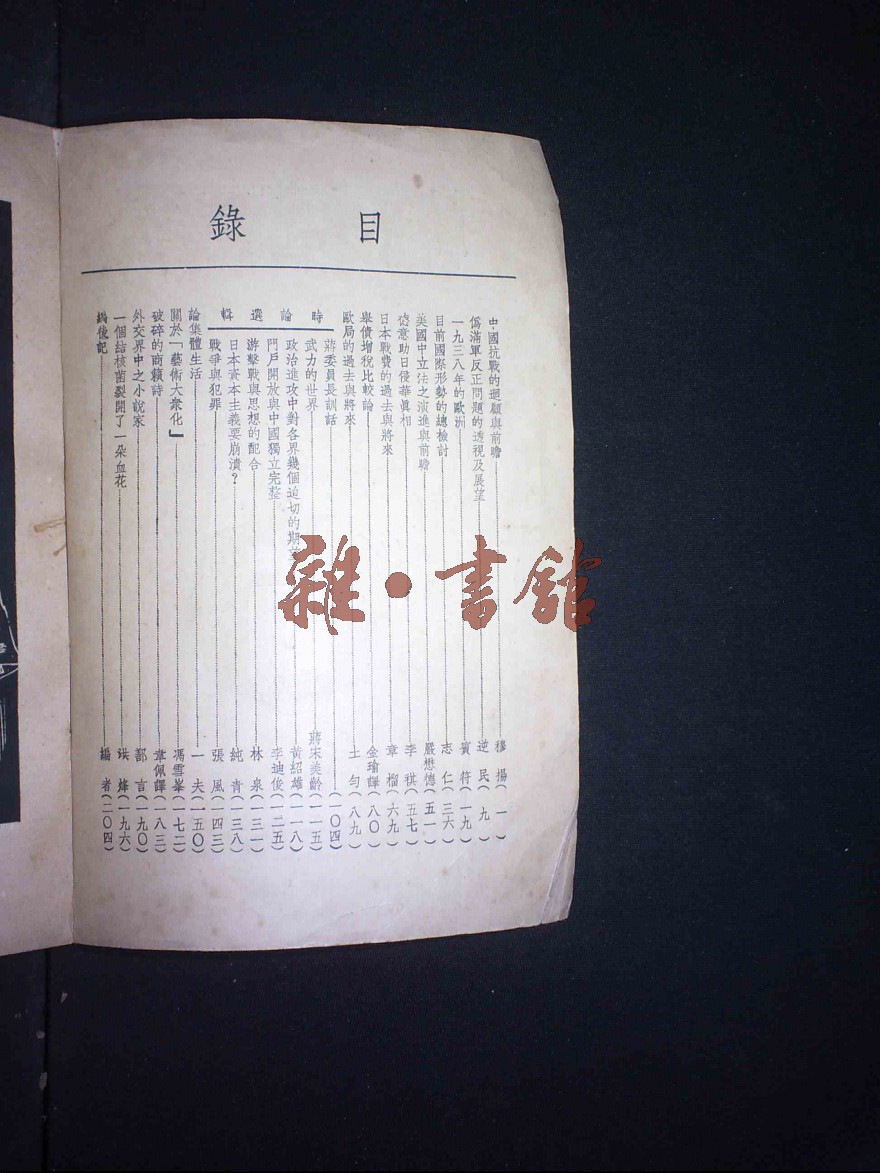 目錄
中國抗戰的迴顧與前瞻……穆揚（一）
僞滿軍反正問題的透視及展望……逆民（九）
一九三八年的歐洲……賓符（一九）
目前國際形勢的總檢討……志仁（三六）
美國中立法之演進與前瞻……嚴懋德（五一）
德意助日侵華眞相……李祺（五七）
日本戰費的過去與將來……章榴（六九）
舉債增稅比較論……金瑜譯（八〇）
歐局的過去與將來……土勻（八九）
時論選輯
蔣委員長訓話……（一〇四）
武力的世界……蔣宋美齡（一一五）
政治進攻中對各界幾個迫切的期望……黃紹雄（一一八）
門戶開放與中國獨立完整……李迪俊（一二五）
游擊戰與思想的配合……林泉（一三一）
日本資本主義要崩潰？……純青（一三八）
戰爭與犯罪……張風（一四三）
論集體生活……一夫（一五〇）
關於「藝術大衆化」……馮雪峯（一七二）
破碎的商籟詩……韋佩譯（一八三）
外交界中之小說家……鄙言（一九〇）
一個結核菌裂開了一朵血花……洪烽（一九六）
編後記……編者（二〇四）
雜·書館